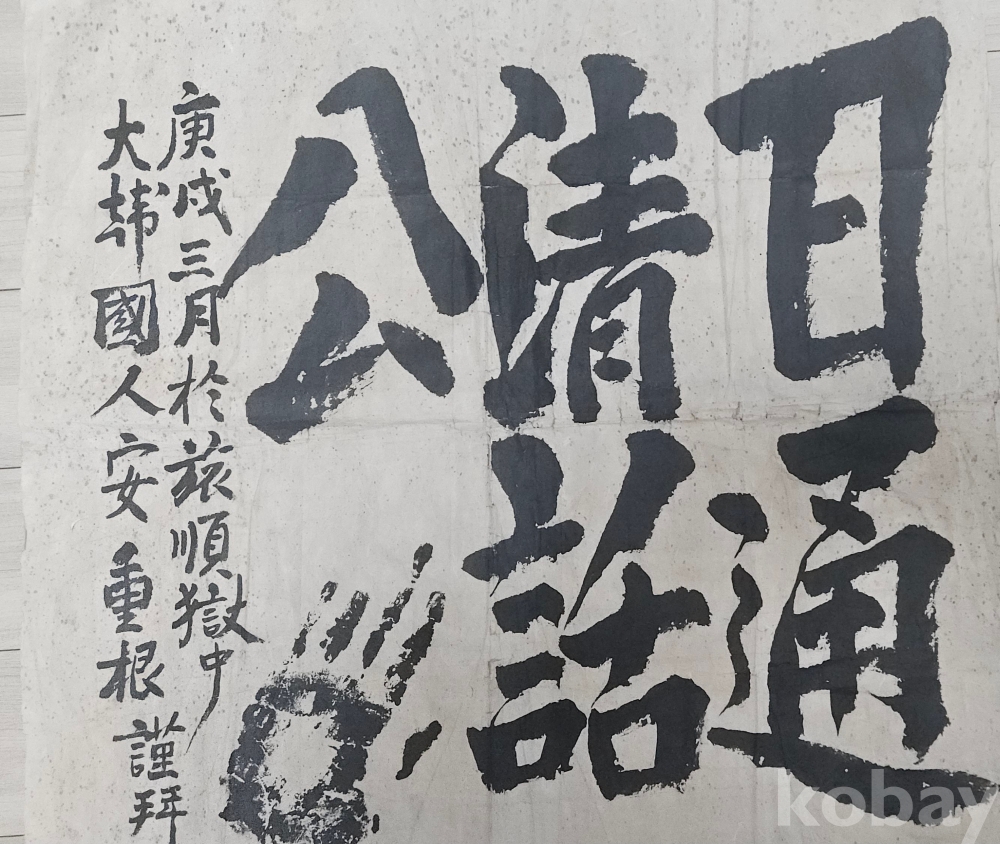 日通
清話
公
庚戌三月於旅順獄中
大韓國人安重根謹拜
kobay